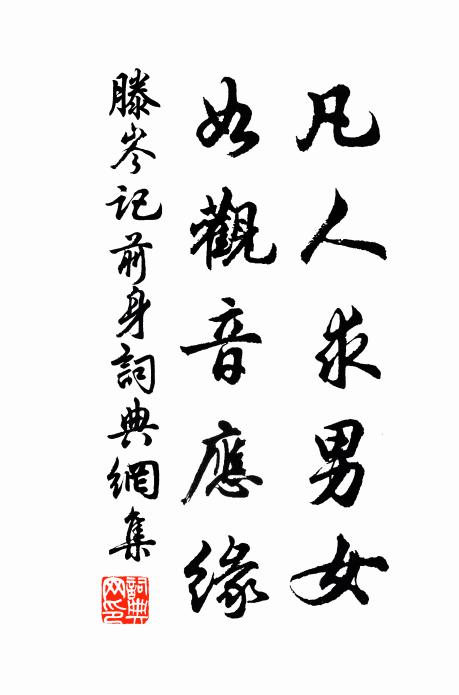 凡人求男女
如觀音應緣
滕岑記前身詞典網集
詞典
网印